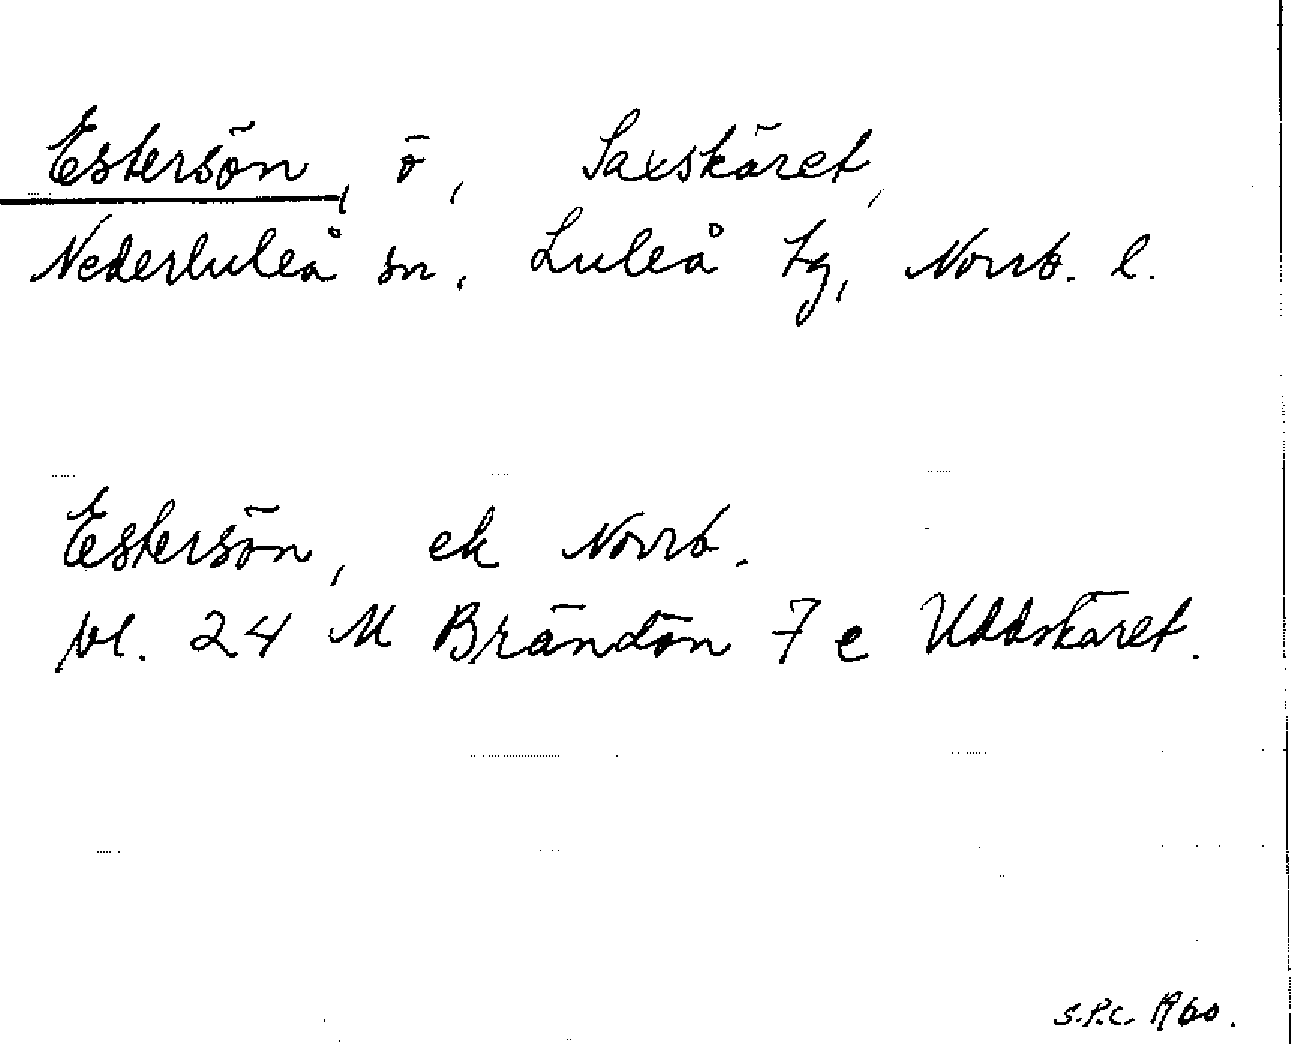 Estersön, ö, Saxskäret,
Nederluleå sn, Luleå tg, Norrb. l.
Estersön, ek Norrb.
bl. 24 M Brändön 7 e Uddskäret.
S.P.C. 1960.